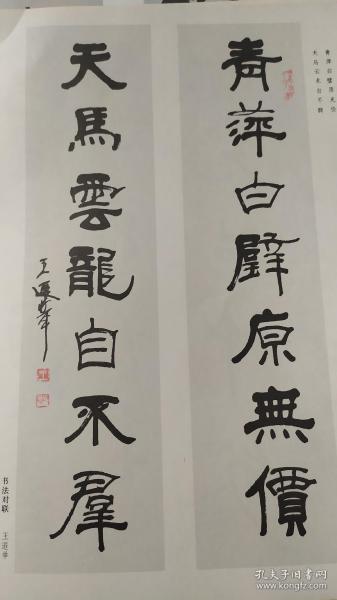 青萍白璧原无价
天马云龙自不群
青萍白璧原無價
天馬雲龍自不羣
王遐舉
书法对联 王遐举
孔夫子旧书网